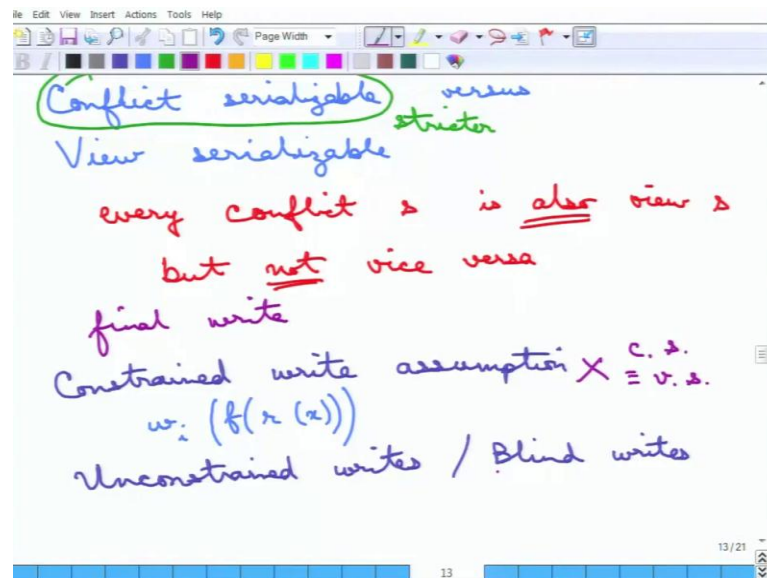 ile Edit View Insert Actions Tools Help
Page Width
B I
Conflict serializable versus
stricter
View serializable
every conflict s is also view s
but not vice versa
final write
Constrained write assumption X c. s.
≡ v. s.
wi (f(r(x)))
Unconstrained writes / Blind writes
13/21
13